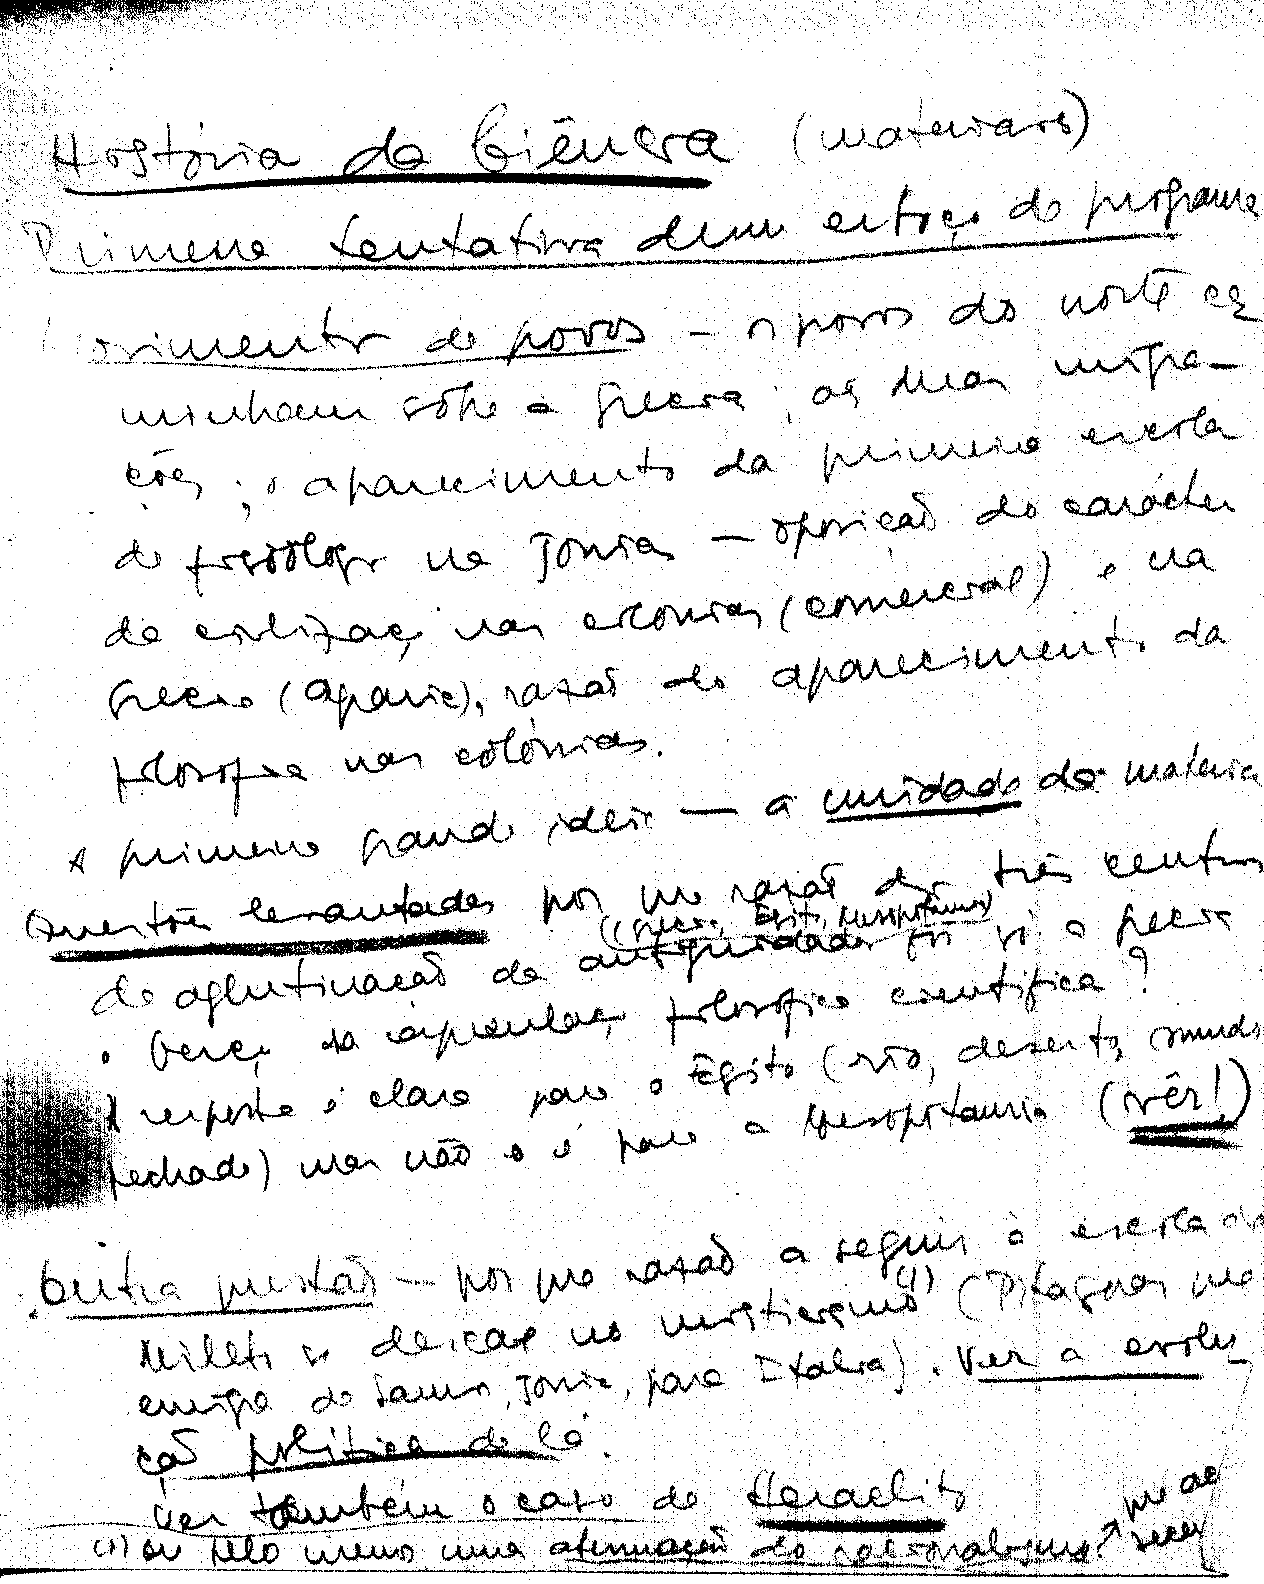 História da Ciência (materiais)
Primeira tentativa dum esboço de programa
Movimentos de povos — os povos do norte ca
minham sôbre a Grecia; as duas migra-
ções; o aparecimento da primeira escola
de fisiólogos na Jonia — oposição do carácter
da civilização nas colónias (comercial) e na
Grecia (agraria), razão do aparecimento da
filosofia nas colónias.
A primeira grande ideia — a unidade da materia
Questões levantadas por que razão dos três centros
(Grecia, Egito, Mesopotamia)
de aglutinação da antiguidade foi só a Grecia
o berço da especulação filosofico cientifica?
A resposta é clara para o Egito (rio, deserto, mundo
fechado) mas não o é para a Mesopotamia (vêr!)
Outra questão — por que razão a seguir à escola de
Mileto se descae no misticismo (1) (Pitagoras que
emigra de Samos, Jonia, para Italia). Ver a evolu
ção política de lá.
Ver também o caso de Heraclito
(1) ou pelo menos uma atenuação do racionalismo?